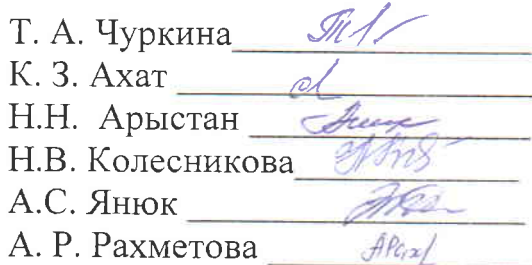 Т. А. Чуркина
К. З. Ахат
Н.Н. Арыстан
Н.В. Колесникова
А.С. Янюк
А. Р. Рахметова